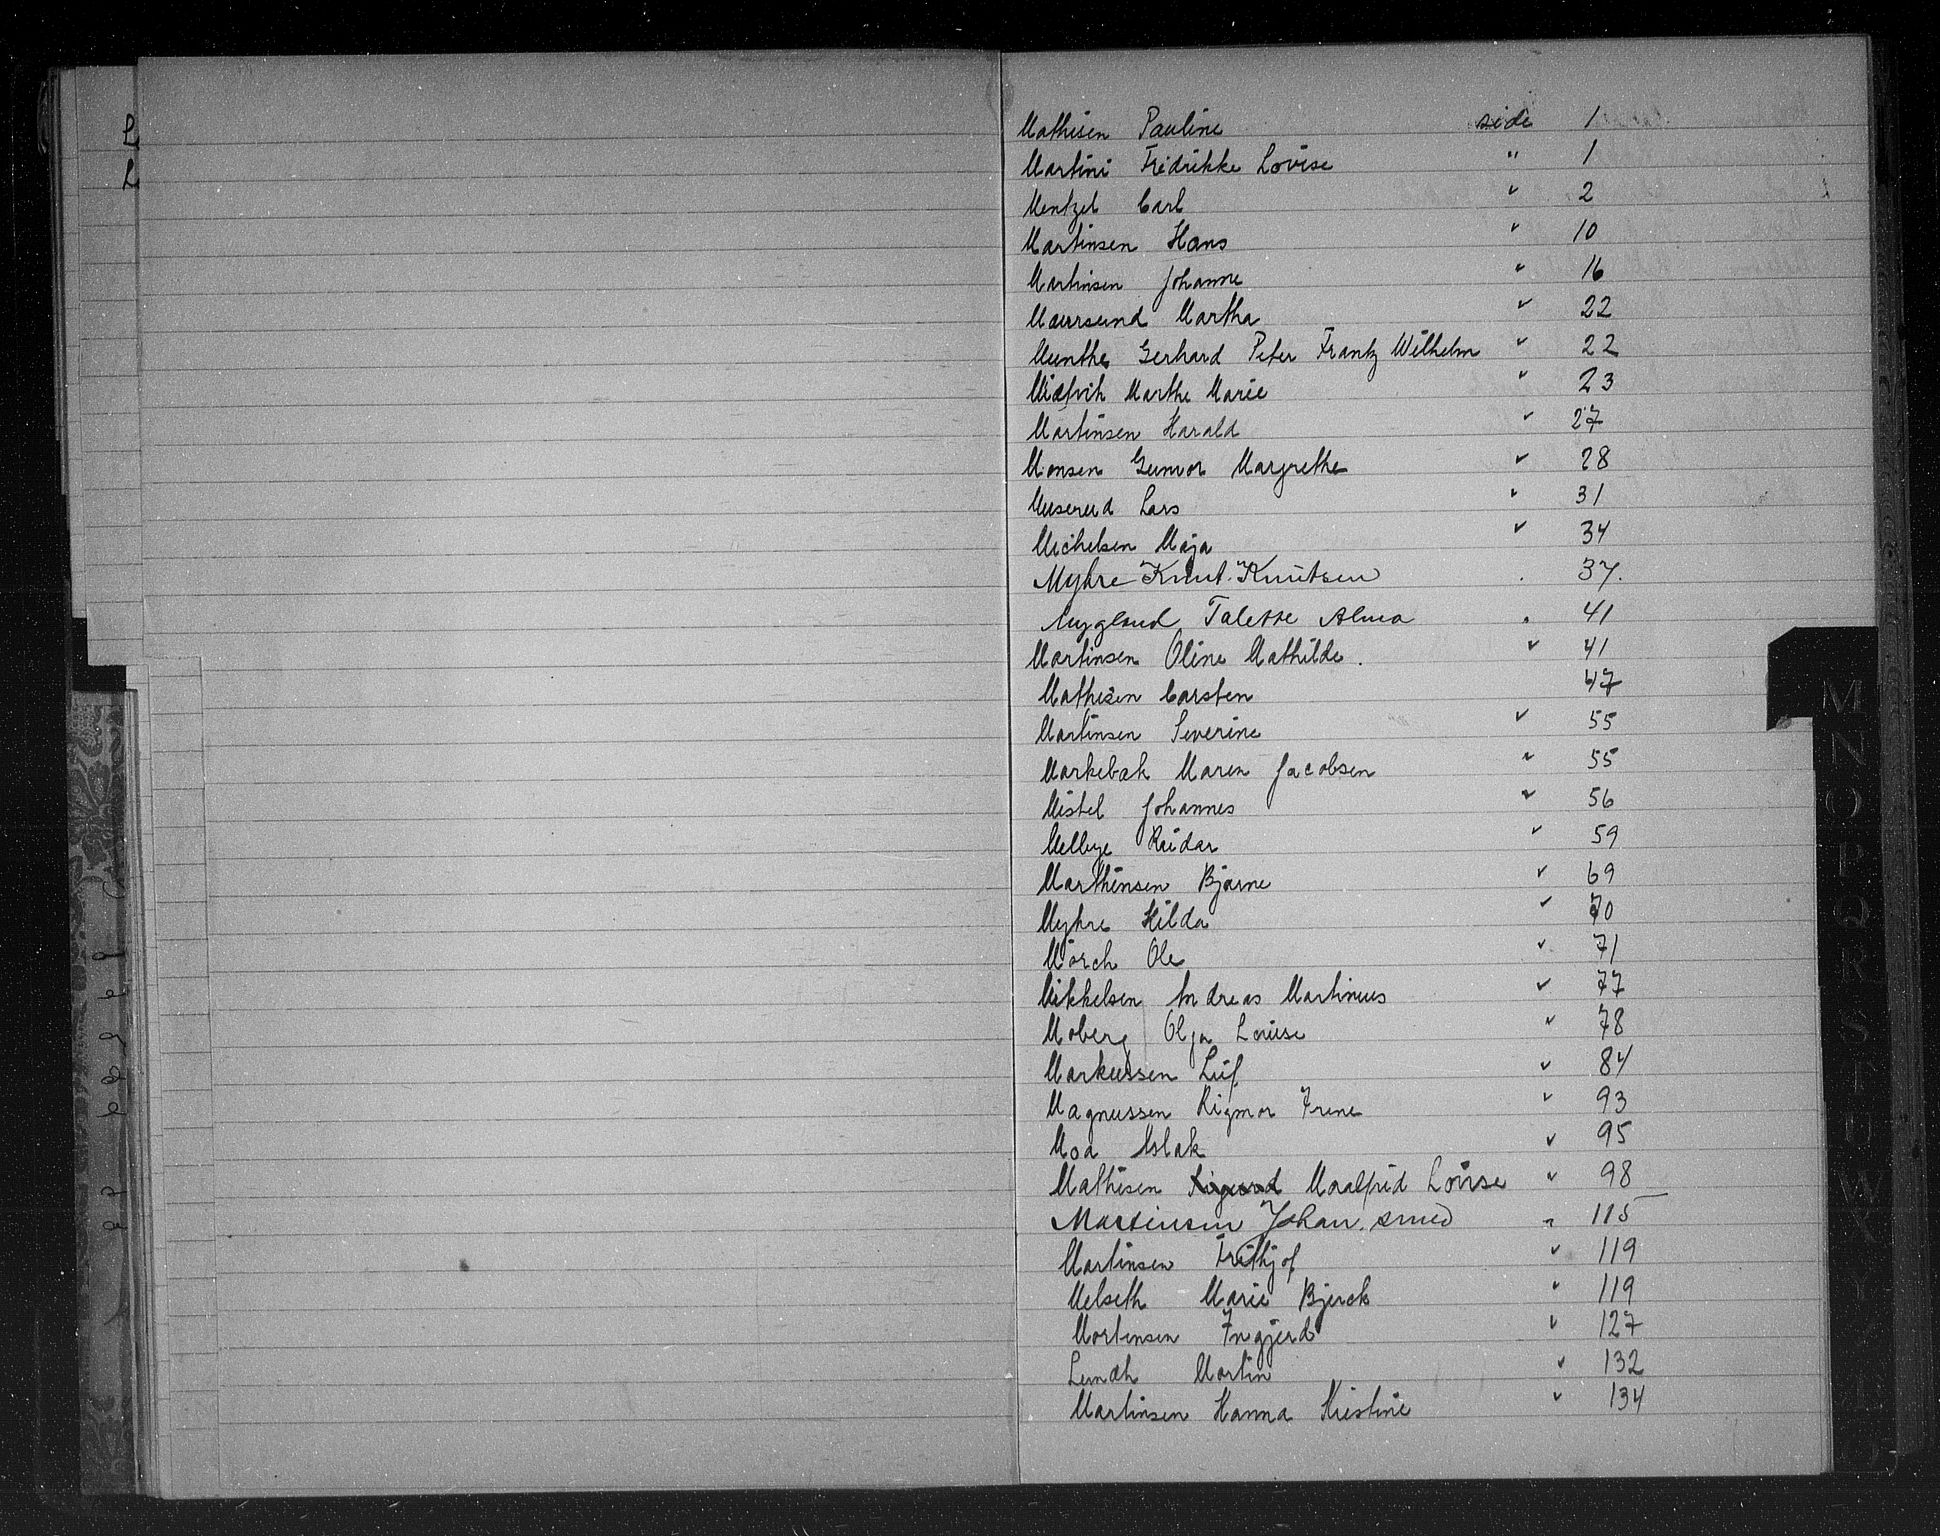 L
L
Mathisen Pauline side 1
Martini Fredrikke Lovise " 1
Mentzel Carl " 2
Martinsen Hans " 10
Martinsen Johanne " 16
Maursund Martha " 22
Munthe Gerhard Peter Frantz Wilhelm " 22
Midtvik Marthe Marie " 23
Martinsen Harald " 27
Monsen Gunvor Margrethe " 28
Muserud Lars " 31
Michelsen Maja " 34
Myhre Knut Knutsen . 37.
Talette Alma . 41
Martinsen Oline Mathilde. " 41
Mathisen Carsten 47
Martinsen Severine " 55
Markebak Maren Jacobsen " 55
Mistel Johannes " 56
Melbye Reidar " 59
Marthinsen Bjarne " 69
Myhre Hilda " 70
Mörch Ole " 71
Mikkelsen Andreas Martinius " 77
Moberg Olga Louise " 78
Markussen Leif " 84
Magnussen Rigmor Irene " 93
Moa Aslak " 95
Mathisen Maalfrid Lovise " 98
Martinsen Johan. smed " 115
Martinsen Frithjof " 119
Melseth Marie Bjerck " 119
Mortensen Ingjerd " 127
Lundh Martin " 132
Martinsen Hanna Kristine " 134
M
N
O
P
Q
R
S
T
U
W
X
Y